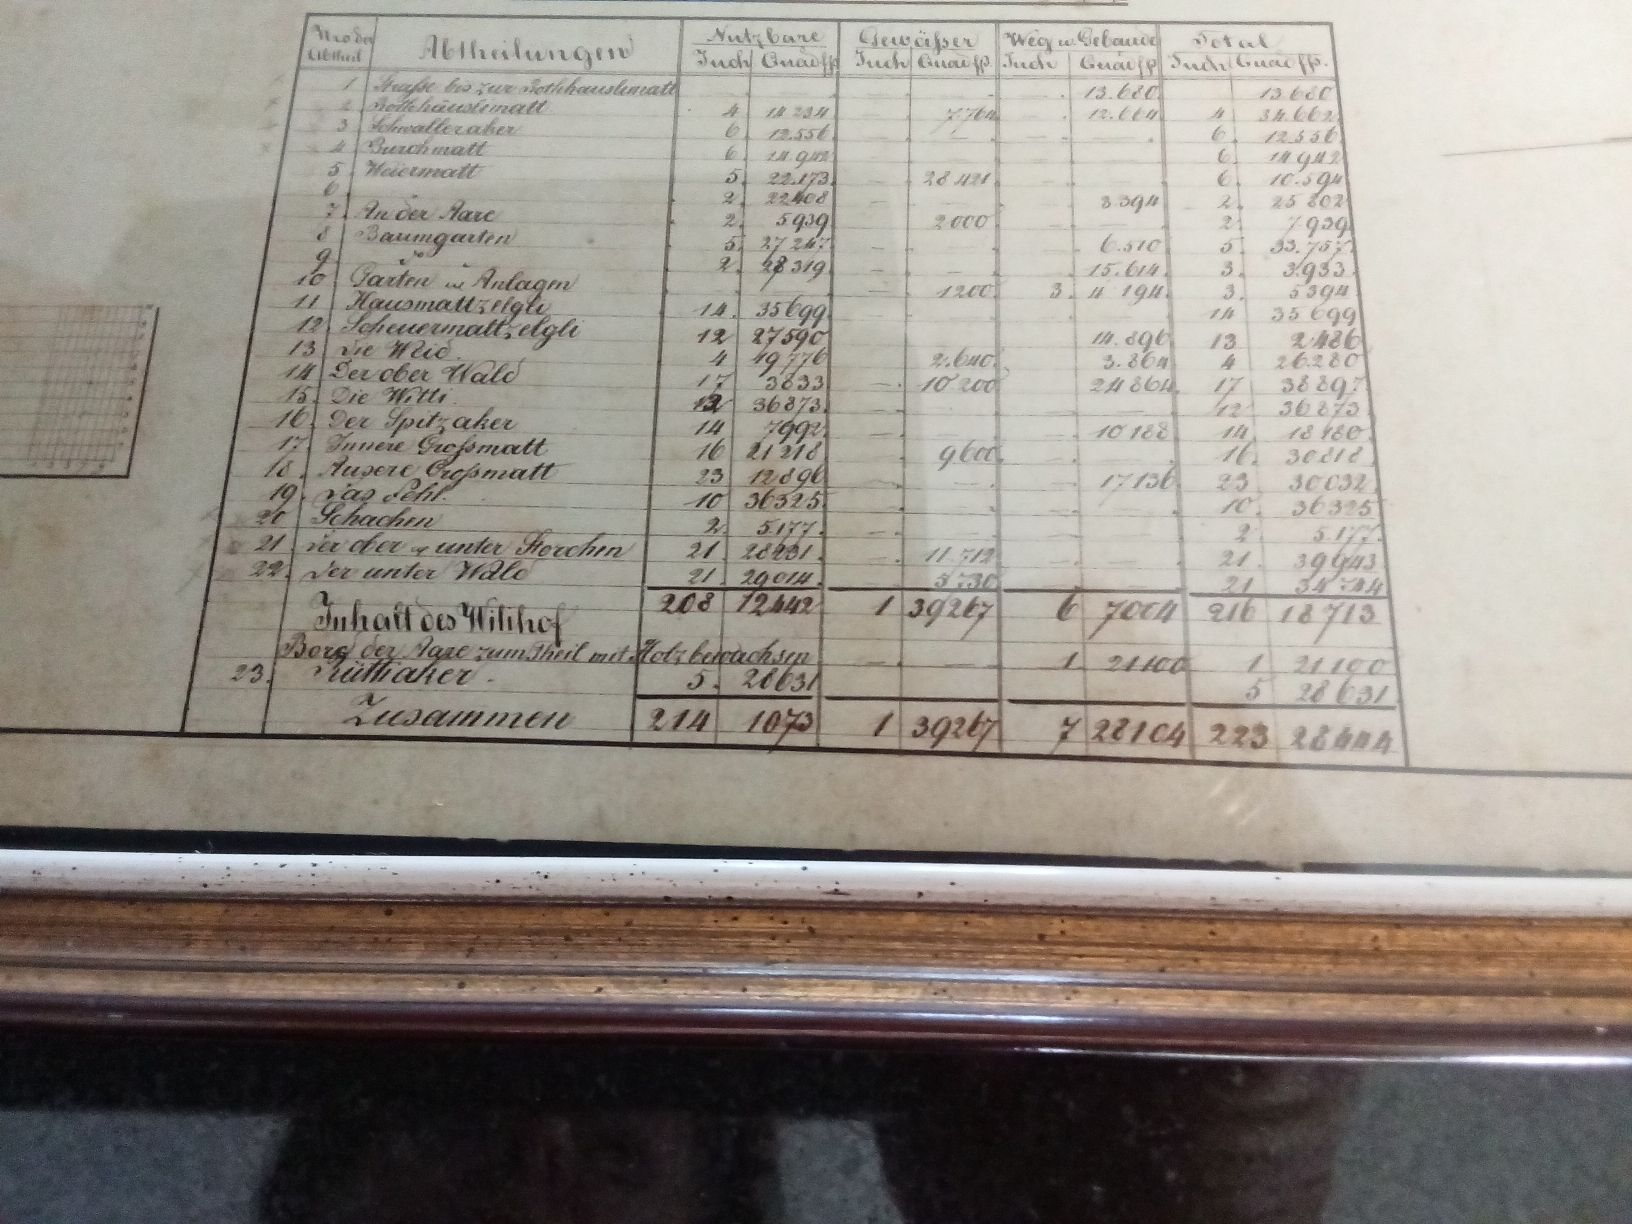 Abtheilungen Nutzbare Gewässer Weg u. Gebäude Total
Abtheil Juch Quadfß Juch Quadfß Juch Quadfß Juch Quadfß.
1 Straße bis zur Rothhauslimatt 13.680 13.680
2 Rothhäuslimatt 4 14 234 7.764 12.664 4 34.662
3 Schwalleraker 6 12.556 6 12.556
4 Burchmatt 6 14 942 6 14 942
5 Weiermatt 5 22.173 28 421 6 10.594
6 2 22408 3.394 2 25 802
7 An der Aare 2 5939 2000 2 7.939
8 Baumgarten 5 27 247 6.510 5 33.757
9 2 28319 15.614 3 3.933
10 Garten u Anlagen 1200 3 4 194 3 5394
11 Hausmattzelgli 14 35699 14 35 699
12 Scheuermattzelgli 12 27590 14.896 13 2486
13 Die Weid 4 19776 2.640 3.864 4 26.280
14 Der ober Wald 17 3833 10 200 24864 17 38897
15 Die Witti 12 36873 12 36873
16 Der Spitzaker 14 7992 10188 14 18180
17 Innere Großmatt 16 21218 9600 16 30818
18 Ausere Großmatt 23 12896 17136 23 30032
19 Das Fehl. 10 36325 10 36325
20 Schachen 2 5177 2 5177
21 Der ober u unter Storchen 21 28231 11.712 21 39943
22 Der unter Wald 21 29014 5730 21 34744
Inhalt des Witihof 208 12442 1 39267 6 7004 216 18713
Bord der Aare zum Theil mit Holz bewachsen 1 21100 1 21100
23 Rüttiaker 5 28631 5 28631
Zusammen 214 1073 1 39267 7 28104 223 28444